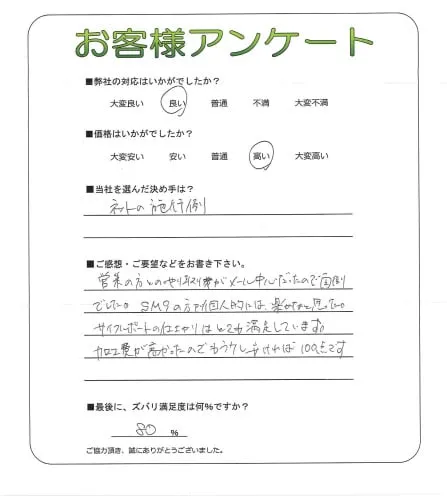 お客様アンケート
■弊社の対応はいかがでしたか?
大変良い 良い 普通 不満 大変不満
■価格はいかがでしたか?
大変安い 安い 普通 高い 大変高い
■当社を選んだ決め手は?
ネットの施行例
■ご感想・ご要望などをお書き下さい。
営業の方とのやり取りがメール中心だったので面倒
でした。SMSの方が個人的には楽かなと思った。
サイクルポートの仕上がりはとても満足しています。
加工費が高かったのでもう少し安ければ100点です
■最後に、ズバリ満足度は何%ですか?
80 %
ご協力頂き、誠にありがとうございました。